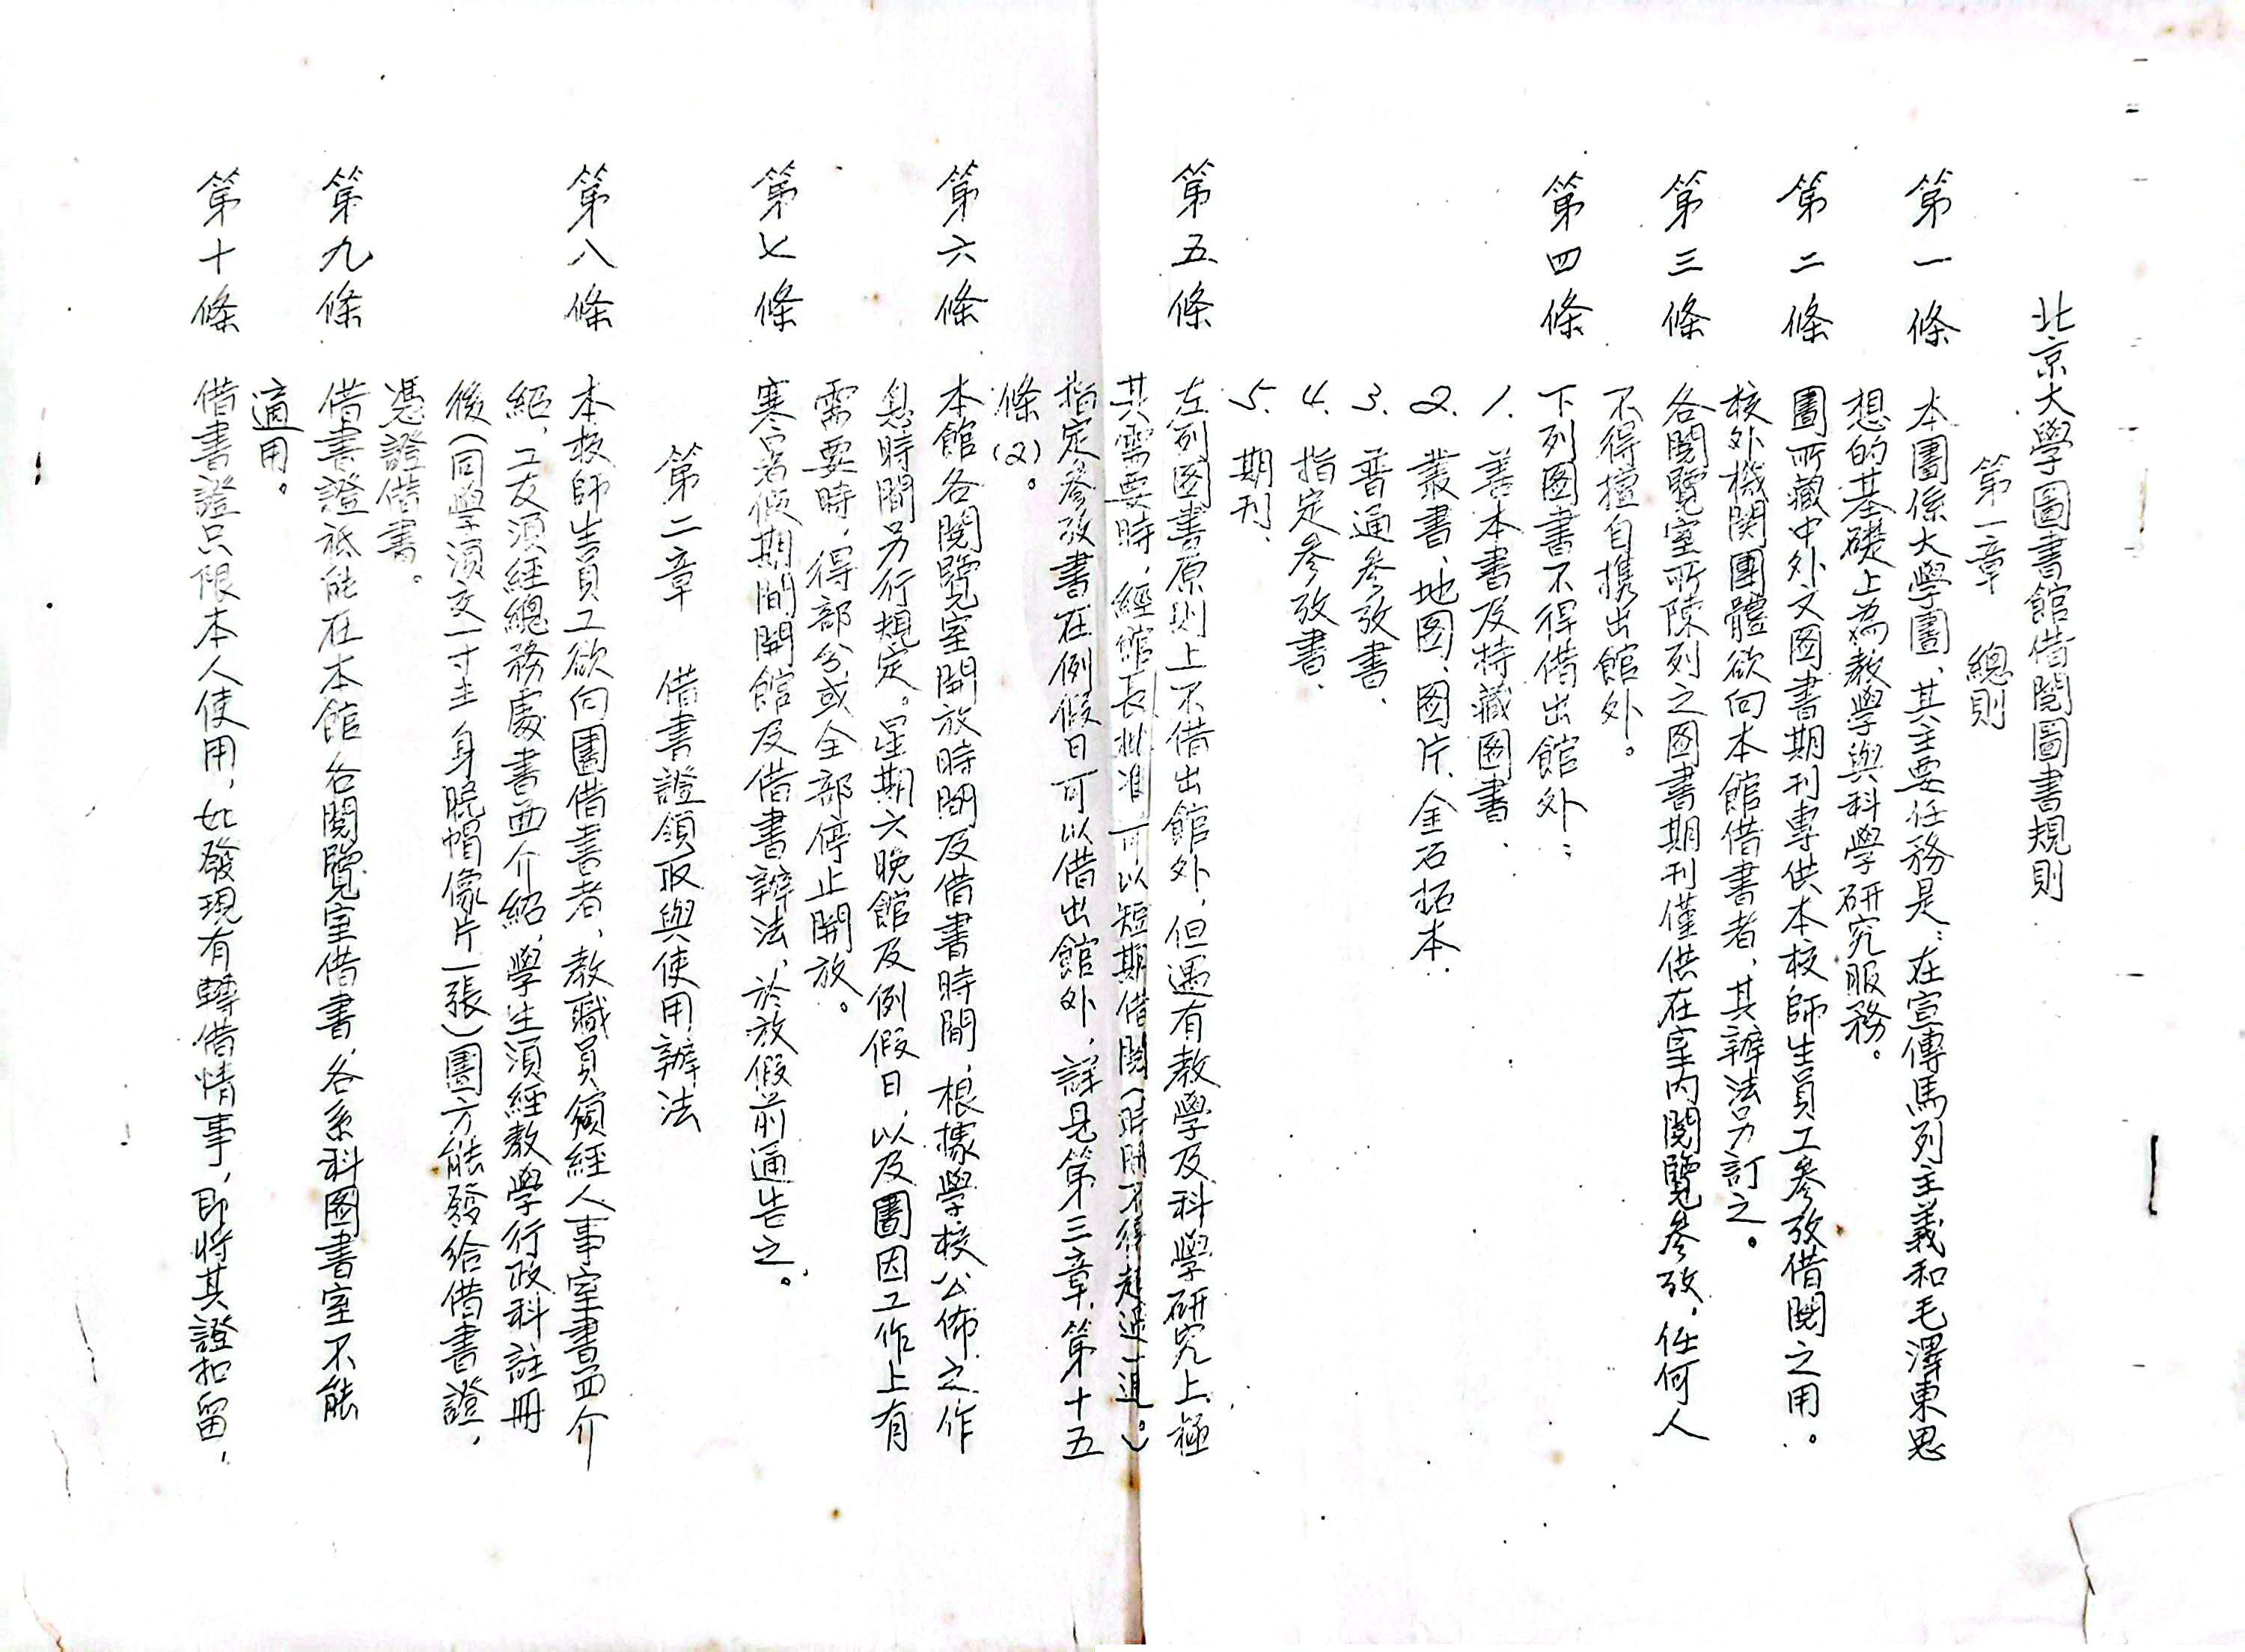 北京大學圖書館借閱圖書規則
第一章　總則
第一條　本圕係大學圕、其主要任務是：在宣傳馬列主義和毛澤東思
想的基礎上為教學與科學研究服務。
第二條　圕所藏中外文图書期刊專供本校師生員工參攷借閱之用。
校外機関團體欲向本館借書者、其辦法另訂之。
第三條　各閱覽室所陳列之图書期刊僅供在室内閱覽參攷，任何人
不得擅自携出館外。
第四條　下列图書不得借出館外：
1. 善本書及特藏图書、
2. 叢書、地图、图片、金石拓本、
3. 普通參攷書、
4. 指定參攷書、
5. 期刊、
第五條　左列图書原則上不借出館外，但遇有教學及科學研究上極
其需要時，經館長批准可以短期借閱（時間不得超過一週。）
指定參攷書在例假日可以借出館外，詳見第三章第十五
條(2)。
第六條　本館各閱覽室開放時間及借書時間，根據學校公佈之作
息時間另行規定。星期六晚館及例假日，以及圕因工作上有
需要時，得部分或全部停止開放。
第七條　寒暑假期間開館及借書辦法、於放假前通告之。
第二章　借書證領取與使用辦法
第八條　本校師生員工欲向圕借書者、教職員須經人事室書面介
紹，工友須經總務處書面介紹，學生須經教學行政科註冊
後（同學須交一寸半身脱帽像片一張）圕方能發給借書證，
憑證借書。
第九條　借書證祗能在本館各閱覽室借書、各系科图書室不能
適用。
第十條　借書證只限本人使用，如發現有轉借情事，即將其證扣留，